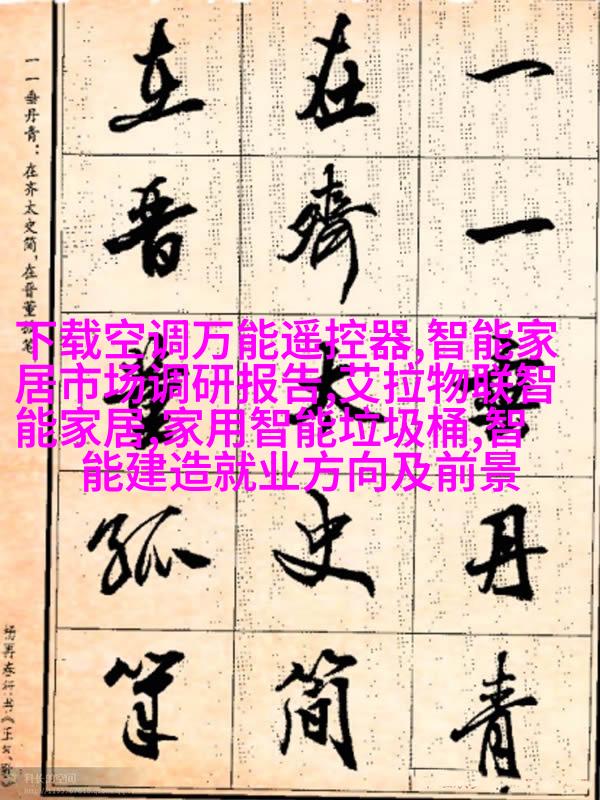 一一垂丹青
在齊太史簡
在晋董狐筆
一一垂丹青：在齐太史简，在晋董
杨再春行书《正气
下载空调万能遥控器,智能家
居市场调研报告,艾拉物联智
能家居,家用智能垃圾桶,智
能建造就业方向及前景
科长的空间